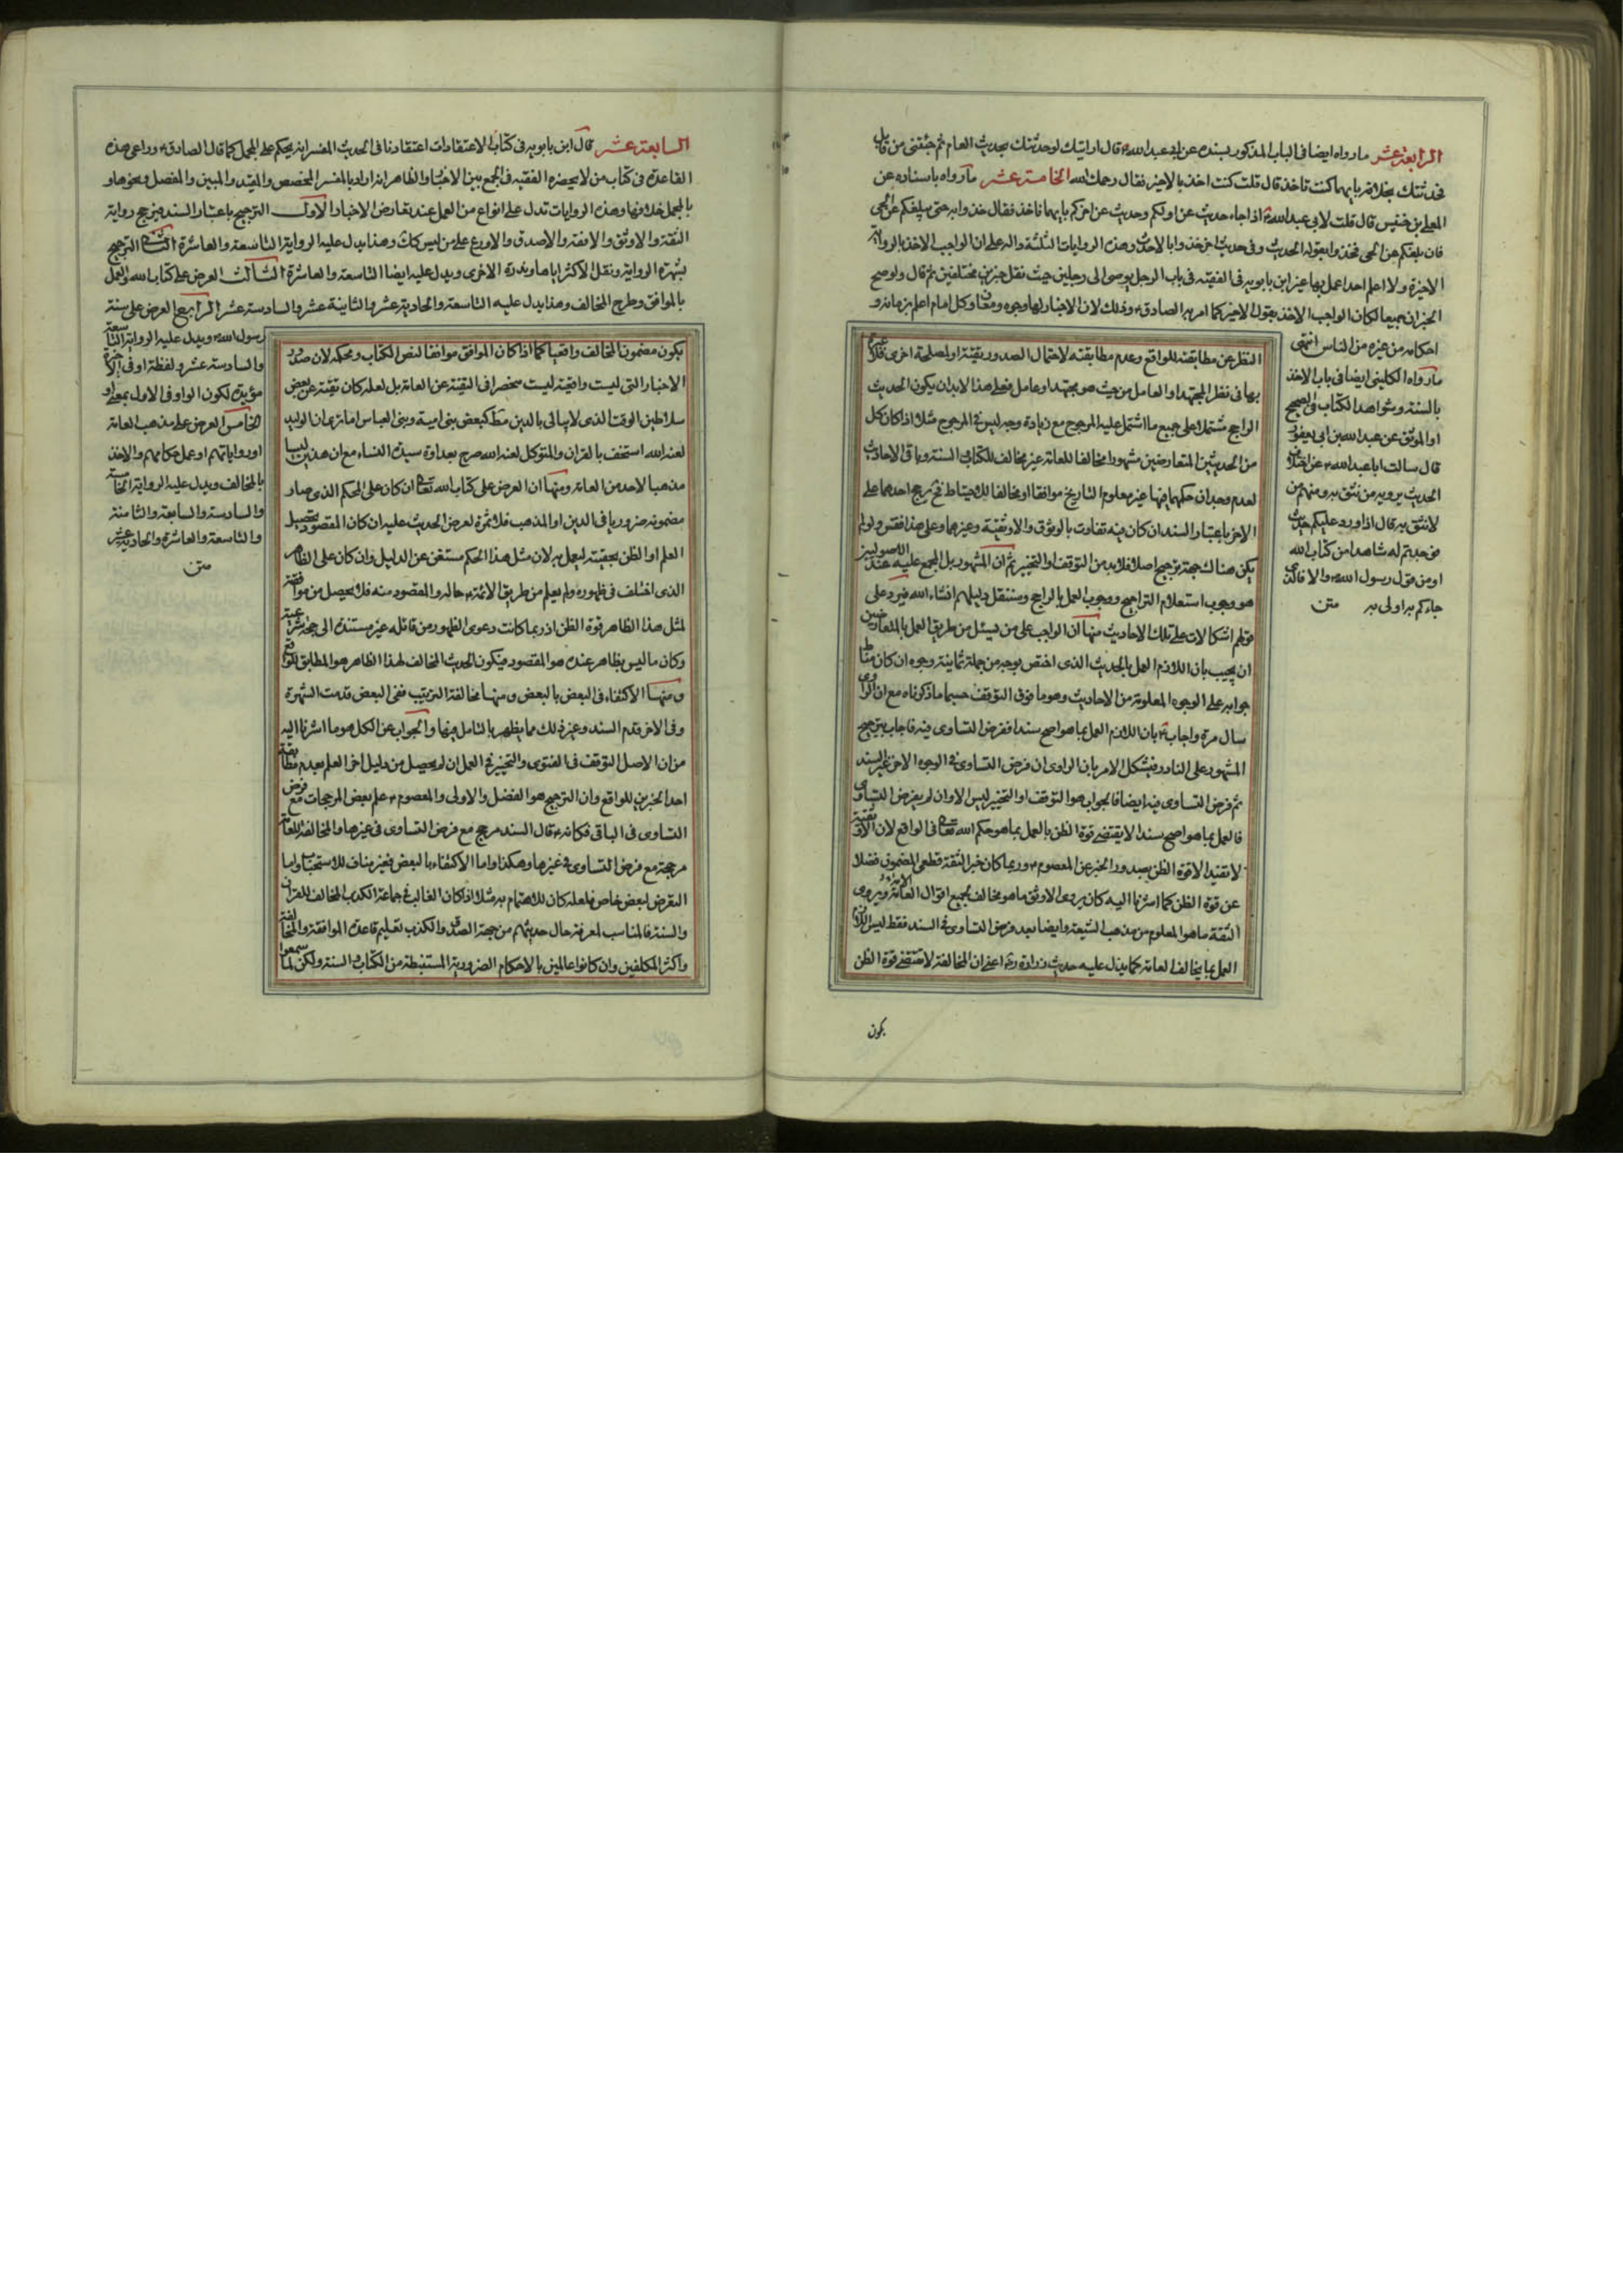 الرابعة عشر ما رواه ايضا في الباب المذكور بسنده عن ابي عبد الله ع قال ارايتك لو حدثتك بحديث العام ثم جئتني من قابل
فحدثتك بخلافه بايهما كنت تاخذ قال قلت كنت اخذ بالاخير فقال رحمك الله الخامسة عشر ما رواه باسناده عن
المعلى بن خنيس قال قلت لابي عبد الله ع اذا جاء حديث عن اولكم وحديث عن اخركم بايهما ناخذ فقال خذوا به حتى يبلغكم عن الحي
فان بلغكم عن الحي فخذوا بقوله الحديث وفي حديث اخر خذوا بالاحدث وهذه الروايات الثلثة دالة على ان الواجب الاخذ بالرواية
الاخيرة ولا اعلم احدا عمل بها غير ابن بابويه في الفقيه في باب الرجل يوصي الى رجلين حيث نقل خبرين مختلفين ثم قال ولو صح
الخبران جميعا لكان الواجب الاخذ بقول الاخير كما امر به الصادق ع وذلك لان الاخبار لها وجوه ومعان وكل امام اعلم بزمانه و
احكامه من غيره من الناس انتهى
ما رواه الكليني ايضا في باب الاخذ
بالسنة وشواهد الكتاب في الصحيح
او الموثق عن عبد الله بن ابي يعفور
قال سالت ابا عبد الله ع عن اختلاف
الحديث يرويه من نثق به ومنهم من
لا نثق به قال اذا ورد عليكم حديث
فوجدتم له شاهدا من كتاب الله
او من قول رسول الله ص والا فالذي
جاءكم به اولى به متن
النظر عن مطابقته للواقع وعدم مطابقته لاحتمال الصدور تقية او لمصلحة اخرى فلا عبرة
بها في نظر المجتهد او العامل من حيث هو مجتهد او عامل فعلى هذا لا بد ان يكون الحديث
الراجح مشتملا على جميع ما اشتمل عليه المرجوح مع زيادة وجه ليس في المرجوح مثلا اذا كان كل
من الحديثين المتعارضين مشهورا مخالفا للعامة غير مخالف للكتاب السنة وباقي الاحاديث
لعدم وجدان حكمهما فيها غير معلوم التاريخ موافقا او مخالفا للاحتياط فح يرجح احدهما على
الاخر باعتبار السند ان كان فيه تفاوت بالوثوق والاوثقية وغيرهما وعلى هذا فقس ولو لم
يكن هناك جهة ترجيح اصلا فلا بد من التوقف او التخيير ثم ان المشهور بل المجمع عليه عند الاصوليين
هو وجوب استعلام التراجيح ووجوب العمل بالراجح وسننقل دليلهم انشاء الله فيرد على
قولهم اشكالات على تلك الاحاديث منها ان الواجب على من يسئل من طريق العمل بالمتعارضين
ان يجيب بان اللازم العمل بالحديث الذي اختص بوجه من جملة ثمانية وجوه ان كان مناط
جوابه على الوجوه المعلومة من الاحاديث وهو ما فوق التوقف حسبما ذكرناه مع ان الراوي
سال مرة واجاب ع بان اللازم العمل بما هو اصح سندا ففرض التساوي فيه فاجاب بترجيح
المشهور على النادر فيشكل الامر بان الراوي ان فرض التساوي في الوجوه الاخر غير السند
ثم فرض التساوي فيه ايضا فالجواب هو التوقف او التخيير ليس الا وان لم يفرض التساوي
فالعمل بما هو اصح سندا لا يقتضي قوة الظن بالعمل بما هو حكم الله تعالى في الواقع لان الاوثقية
لا تفيد الا قوة الظن بصدور الخبر عن المعصوم ع وربما كان خبر الثقة قطعي المضمون فضلا
عن قوة الظن كما اشرنا اليه كان يروي الاوثق ما هو مخالف لجميع اقوال العامة ويروي
الثقة ما هو المعلوم من مذهب الشيعة وايضا بعد فرض التساوي في السند فقط ليس
العمل بما يخالف العامة كما يدل عليه حديث زرارة اعني ان المخالفة لا تقتضي قوة الظن
بكون
السابعة عشر قال ابن بابويه في كتاب الاعتقادات اعتقادنا في الحديث المفسر انه يحكم على المجمل كما قال الصادق ع وراعى هذه
القاعدة في كتاب من لا يحضره الفقيه في الجمع بين الاخبار والظاهر انه اراد بالمفسر المخصص والمقيد والمبين والمفصل ونحوها و
بالمجمل خلافها وهذه الروايات تدل على انواع من العمل عند تعارض الاخبار الاول الترجيح باعتبار السند فيرجح رواية
الثقة والاوثق والافقه والاصدق والاورع على من ليس كذلك وهذا يدل عليه الرواية التاسعة والعاشرة الثاني الترجيح
بشهرة الرواية ونقل الاكثر اياها وندرة الاخرى ويدل عليه ايضا التاسعة والعاشرة الثالث العرض على كتاب الله والعمل
بالموافق وطرح المخالف وهذا يدل عليه التاسعة والحادية عشر والثانية عشر والسادسة عشر الرابع العرض على سنة
رسول الله ص ويدل عليه الرواية التاسعة
والسادسة عشر ولفظة او في الاخيرة
مؤيدة لكون الواو في الاول بمعنى او
الخامس العرض على مذهب العامة
او رواياتهم او عمل حكامهم والاخذ
بالمخالف ويدل عليه الرواية الخامسة
والسادسة والسابعة والثامنة
والتاسعة والعاشرة والحادية عشر
متن
يكون مضمون المخالف واقعيا كما اذا كان الموافق موافقا لنص الكتاب ومحكمه لان صدور
الاخبار التي ليست واقعية ليست منحصرا في التقية عن العامة بل لعله كان تقية عن بعض
سلاطين الوقت الذي لا يبالي بالدين مط كبعض بني امية وبني العباس اما ترى ان الوليد
لعنه الله استخف بالقران والمتوكل لعنه الله صرح بعداوة سيدة النساء مع ان هذين ليسا
مذهبا لاحد من العامة ومنها ان العرض على كتاب الله تعالى ان كان على المحكم الذي صار
مضمونه ضروريا في الدين او المذهب فلا ثمرة لعرض الحديث عليه ان كان المقصود تحصيل
العلم او الظن بحقيته ليعمل به لان مثل هذا الحكم مستغن عن الدليل وان كان على الظاهر
الذي اختلف في ظهوره ولم يعلم من طريق الائمة ع حاله والمقصود منه فلا يحصل من موافقة
لمثل هذا الظاهر قوة الظن اذ ربما كانت دعوى الظهور من قائله غير مستندة الى حجة شرعية
وكان ما ليس بظاهر عنده هو المقصود فيكون الحديث المخالف لهذا الظاهر هو المطابق للواقع
ومنها الاكتفاء في البعض بالبعض ومنها مخالفة الترتيب ففي البعض قدمت الشهرة
وفي الاخر قدم السند وغير ذلك مما يظهر بالتامل فيها والجواب عن الكل هو ما اشرنا اليه
من ان الاصل التوقف في الفتوى والتخيير في العمل ان لم يحصل من دليل اخر العلم بعدم مطابقة
احد الخبرين للواقع وان الترجيح هو الفضل والاولى والمعصوم ع علم بعض المرجحات مع فرض
التساوي في الباقي فكانه ع قال السند مرجح مع فرض التساوي في غيرها والمخالفة للعامة
مرجحة مع فرض التساوي في غيرها وهكذا واما الاكتفاء بالبعض فغير مناف للاستحباب واما
التعرض لبعض خاص فلعله كان للاهتمام به مثلا اذا كان الغالب في جماعة الكذب المخالف للقران
والسنة فالمناسب لمعرفة حال حديثهم من جهة الصدق والكذب تعليم قاعدة الموافقة والمخالفة
واكثر المكلفين وان كانوا عالمين بالاحكام الضرورية المستنبطة من الكتاب والسنة ولكن لما سمعوا